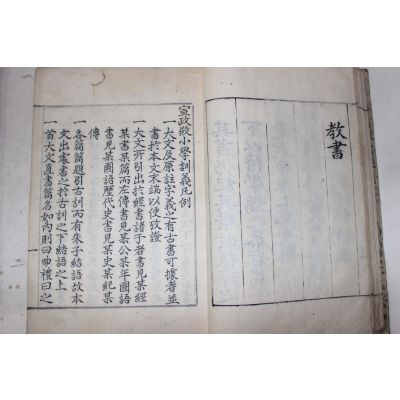 教書
宣政殿小學訓義凡例
一大文及原註字義之有古書可據者並
書於本文末端以便攷證
一大文所引出於經書諸子者書見某經
某書某篇而左傳書見某公某年國語
書見某國語歷代史書見某史某紀某
傳
一各篇篇題引古訓而有朱子結語故本
文出處書之於古訓之下結語之上
一首大文直書篇名如內則曰曲禮曰之